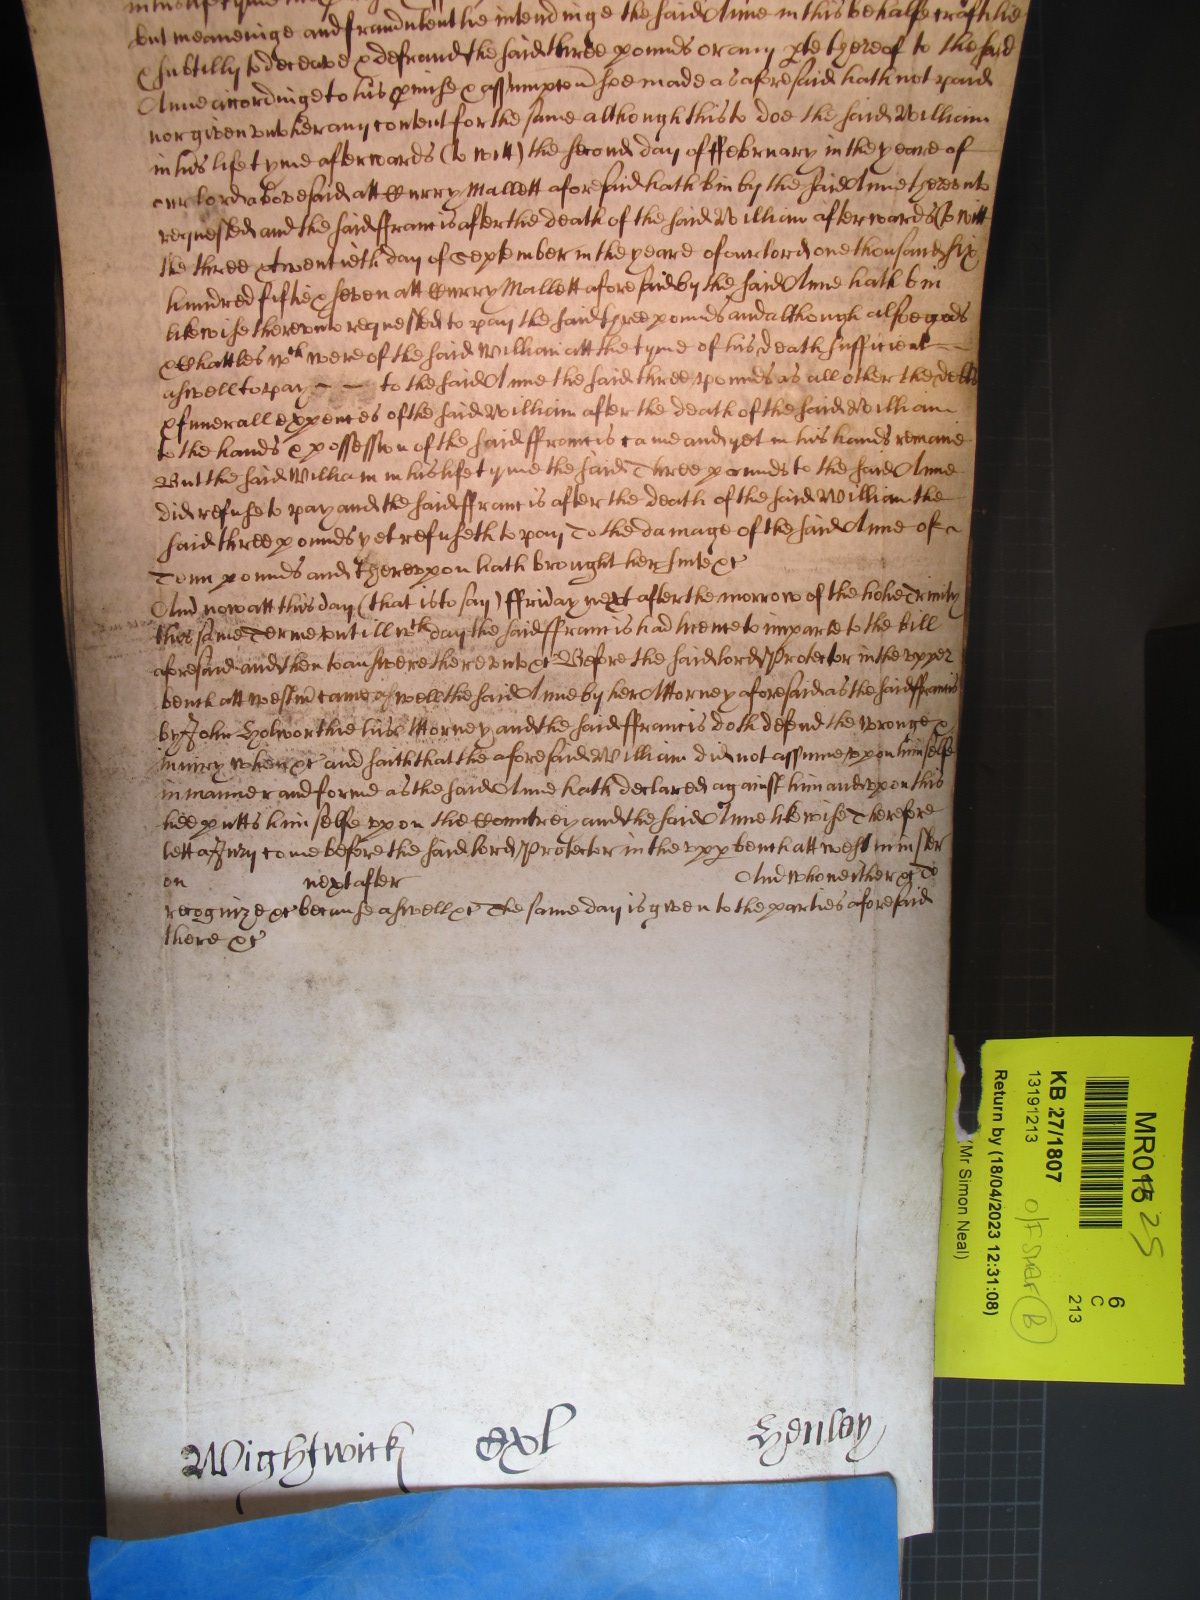 in his life tyme
but meaneinge and fraudulentlie intendinge the said Anne in this behalfe craftilie
& subtilly to deceave & defraud the said three pounds or any pte thereof to the said
Anne accordinge to his pmise & assumpcon soe made as aforesaid hath not paid
nor given unto her any content for the same although this to doe the said William
in his life tyme afterwards (to witt) the second day of ffebruary in the yeare of
our lord abovesaid att Currry Mallett aforesaid hath bin by the said Anne thereunto
requested and the said ffrancis after the death of the said William afterwards (to witt
the three & twentieth day of September in the yeare of our lord one thousand six
hundred fiftie & seven att Currry Mallett aforesaid by the said Anne hath bin
likewise thereunto requested to pay the said three pounds and although alsoe gods
& Chattles wch were of the said William att the tyme of his death sufficient
aswell to pay — — to the said Anne the said three pounds as all other the debts
& funerall expences of the said William after the death of the said William
to the hands & possession of the said ffrancis came and yet in his hands remane
But the said William in his life tyme the said Three pounds to the said Anne
did refuse to pay and the said ffrancis after the death of the said William the
said three pounds yet refuseth to pay To the damage of the said Anne of
Tenn pounds and thereupon hath brought her suite &c
And now att this day (that is to say) ffriday next after the morrow of the holie Trinity
this same Terme untill wch day the said ffrancis had licence to imparle to the bill
aforesaid and then to answere thereunto &c Before the said lord Protector in the upper
bench att Westm came aswell the said Anne by her Attorney aforesaid as the said ffrancis
by John Holworthie his Attorney and the said ffrancis doth defend the wronge &
iniury when &c and saith that the aforesaid William did not assume upon himselfe
in manner and forme as the said Anne hath declared against him and upon this
hee putts himselfe upon the Countrey and the said Anne likewise Therefore
lett a Jury come before the said lord Protector in the upp bench att westminster
on next after And who neither &c To
recognize &c because aswell &c The same day is given to the parties aforesaid
there &c
Wightwick exl Henley
MR018 25
KB 27/1807
13191213
Return by (18/04/2023 12:31:08)
(Mr Simon Neal)
6
C
213
B